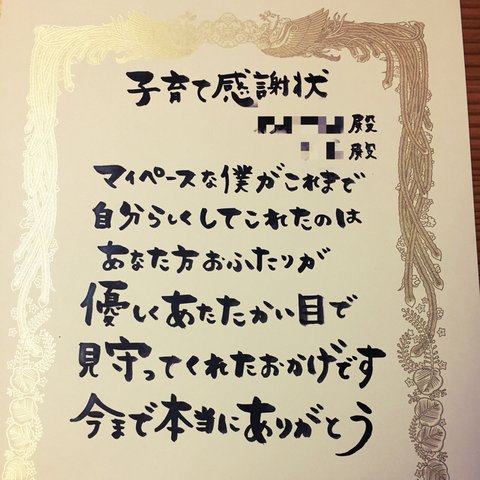 子育て感謝状
殿
殿
マイペースな僕がこれまで
自分らしくしてこれたのは
あなた方おふたりが
優しくあたたかい目で
見守ってくれたおかげです
今まで本当にありがとう